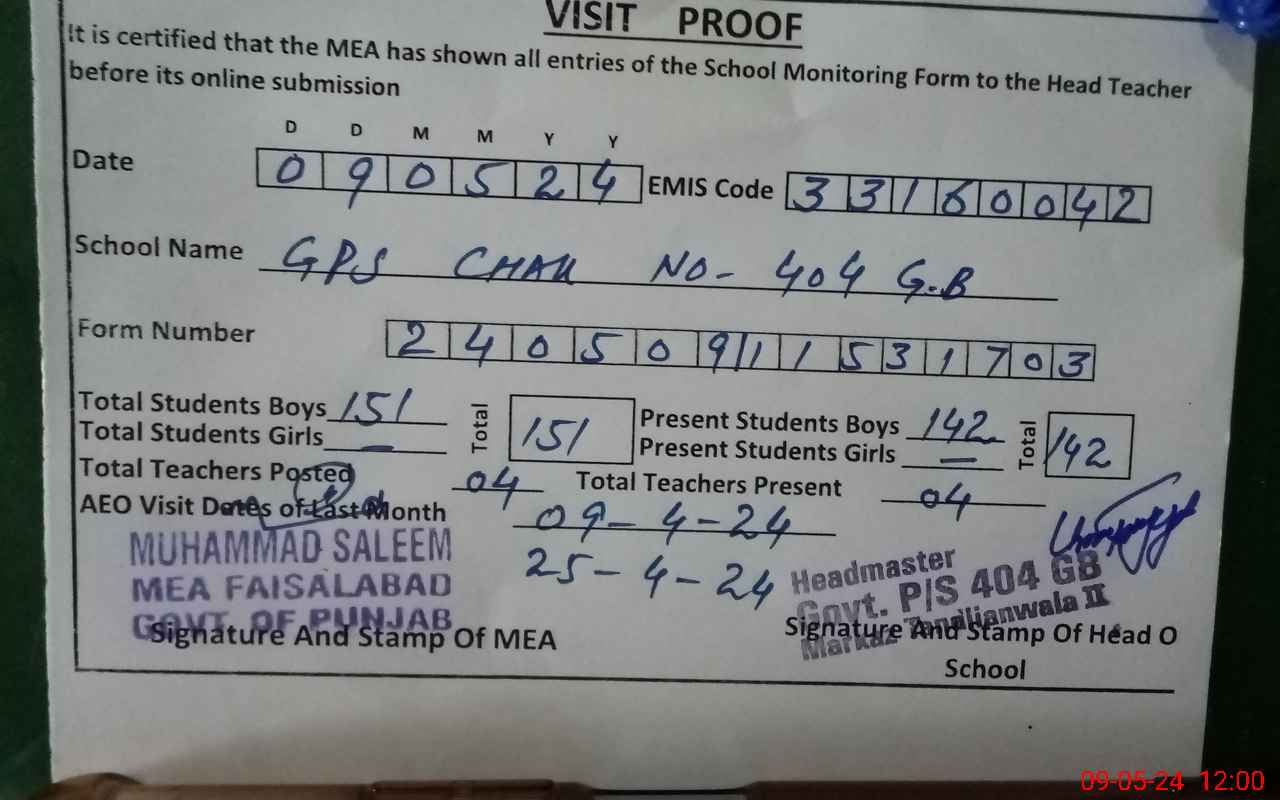 VISIT PROOF
It is certified that the MEA has shown all entries of the School Monitoring Form to the Head Teacher
before its online submission
D D M M Y Y
Date 0 9 0 5 2 4 EMIS Code 3 3 1 6 0 0 4 2
School Name GPS CHAK NO- 404 G.B
Form Number 2 4 0 5 0 9 1 1 5 3 1 7 0 3
Total Students Boys 151 Total 151 Present Students Boys 142 Total 142
Total Students Girls — Present Students Girls —
Total Teachers Posted 04 Total Teachers Present 04
AEO Visit Dates of Last Month 09-4-24
25-4-24
MUHAMMAD SALEEM
MEA FAISALABAD
GOVT. OF PUNJAB
Signature And Stamp Of MEA
Headmaster
Govt. P/S 404 GB
Markaz Tandlianwala II
Signature And Stamp Of Head O
School
09-05-24 12:00